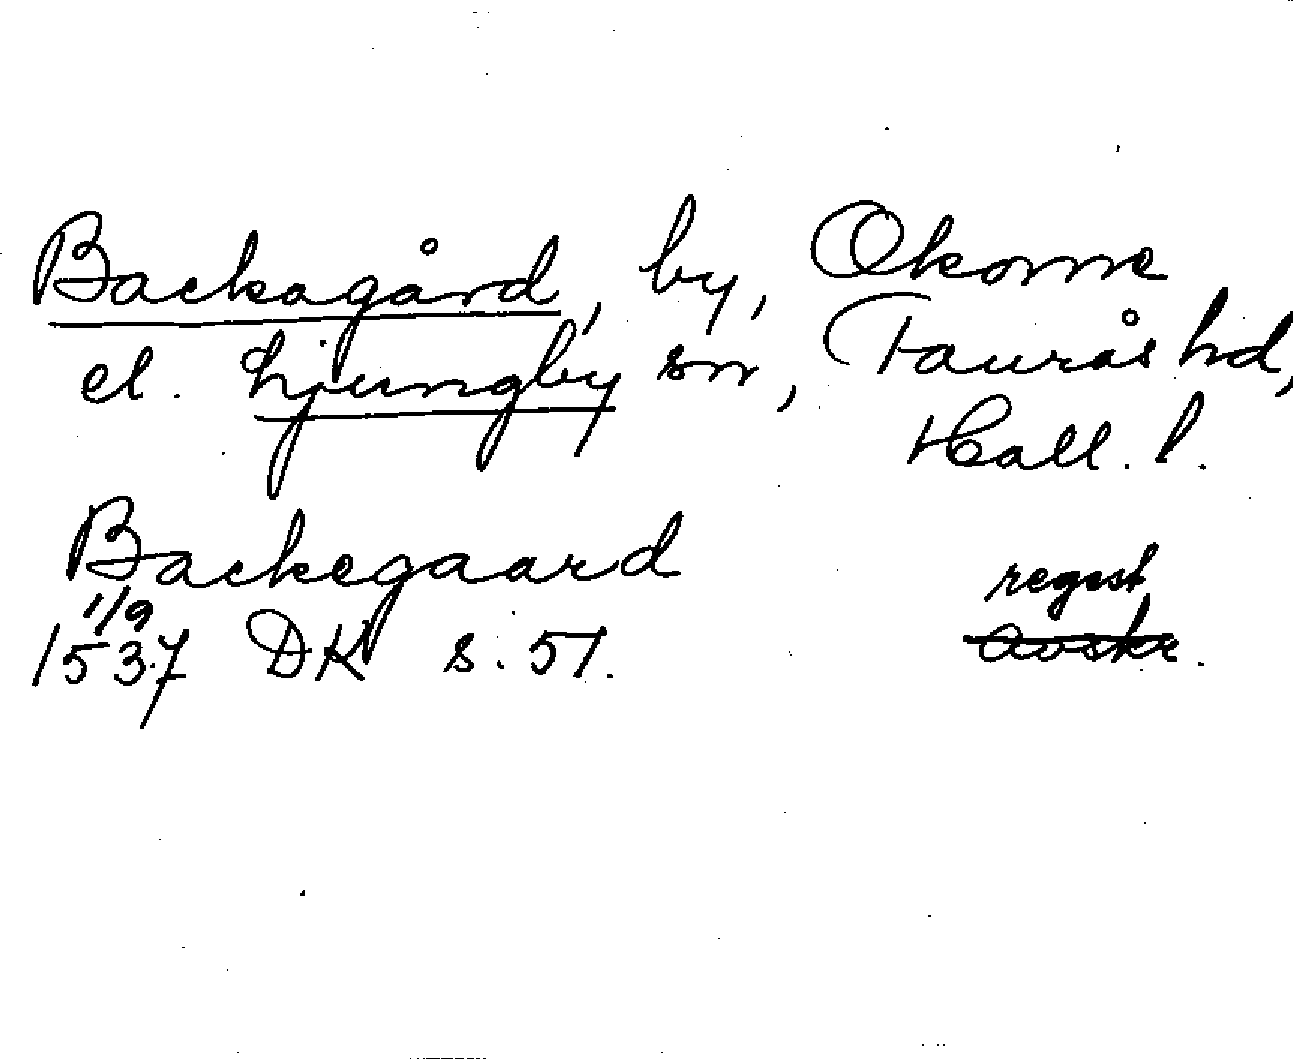 Backagård, by, Okome
el. Ljungby sn, Faurås hd,
Hall. l.
Backegaard
1/9
1537 DK s. 51.
regest
Avskr.